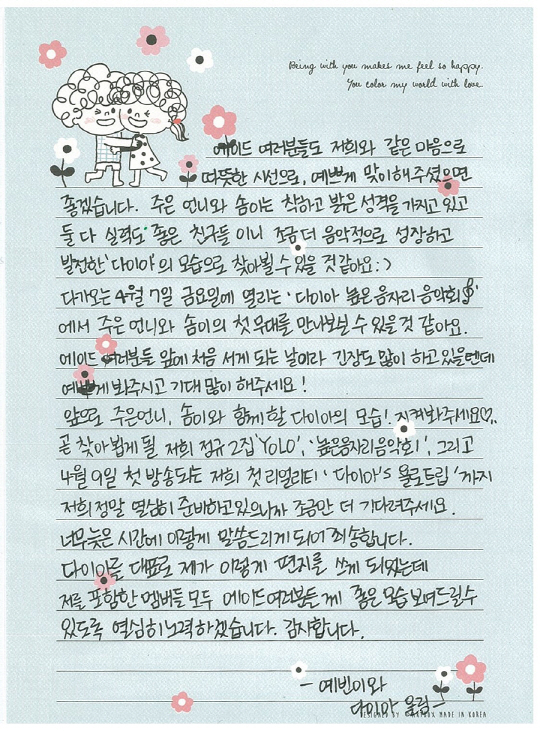 Being with you makes me feel so happy.
You color my world with love.
에이드 여러분들도 저희와 같은 마음으로
따뜻한 시선으로, 예쁘게 맞이해주셨으면
좋겠습니다. 주은 언니와 솜이는 착하고 밝은 성격을 가지고 있고
둘 다 실력도 좋은 친구들 이니 조금 더 음악적으로 성장하고
발전한 '다이아'의 모습으로 찾아뵐 수 있을 것 같아요 : )
다가오는 4월 7일 금요일에 열리는 '다이아 높은음자리 음악회'
에서 주은 언니와 솜이의 첫 무대를 만나보실 수 있을것 같아요.
에이드 여러분들 앞에 처음 서게 되는 날이라 긴장도 많이 하고있을텐데
예쁘게 봐주시고 기대 많이 해주세요!
앞으로 주은언니, 솜이와 함께 할 다이아의 모습! 지켜봐주세요♡..
곧 찾아 뵙게 될 저희 정규 2집 'YOLO', '높은음자리음악회', 그리고
4월 9일 첫 방송되는 저희 첫 리얼리티 '다이아's 욜로트립' 까지
저희 정말 열심히 준비하고있으니까 조금만 더 기다려주세요.
너무늦은 시간에 이렇게 말씀드리게 되어 죄송합니다.
다이아를 대표로 제가 이렇게 편지를 쓰게 되었는데
저를 포함한 멤버들 모두 에이드여러분들께 좋은 모습 보여드릴수
있도록 열심히 노력하겠습니다. 감사합니다.
- 예빈이와
다이아 올림 -
DESIGNED BY ARTBOX MADE IN KOREA